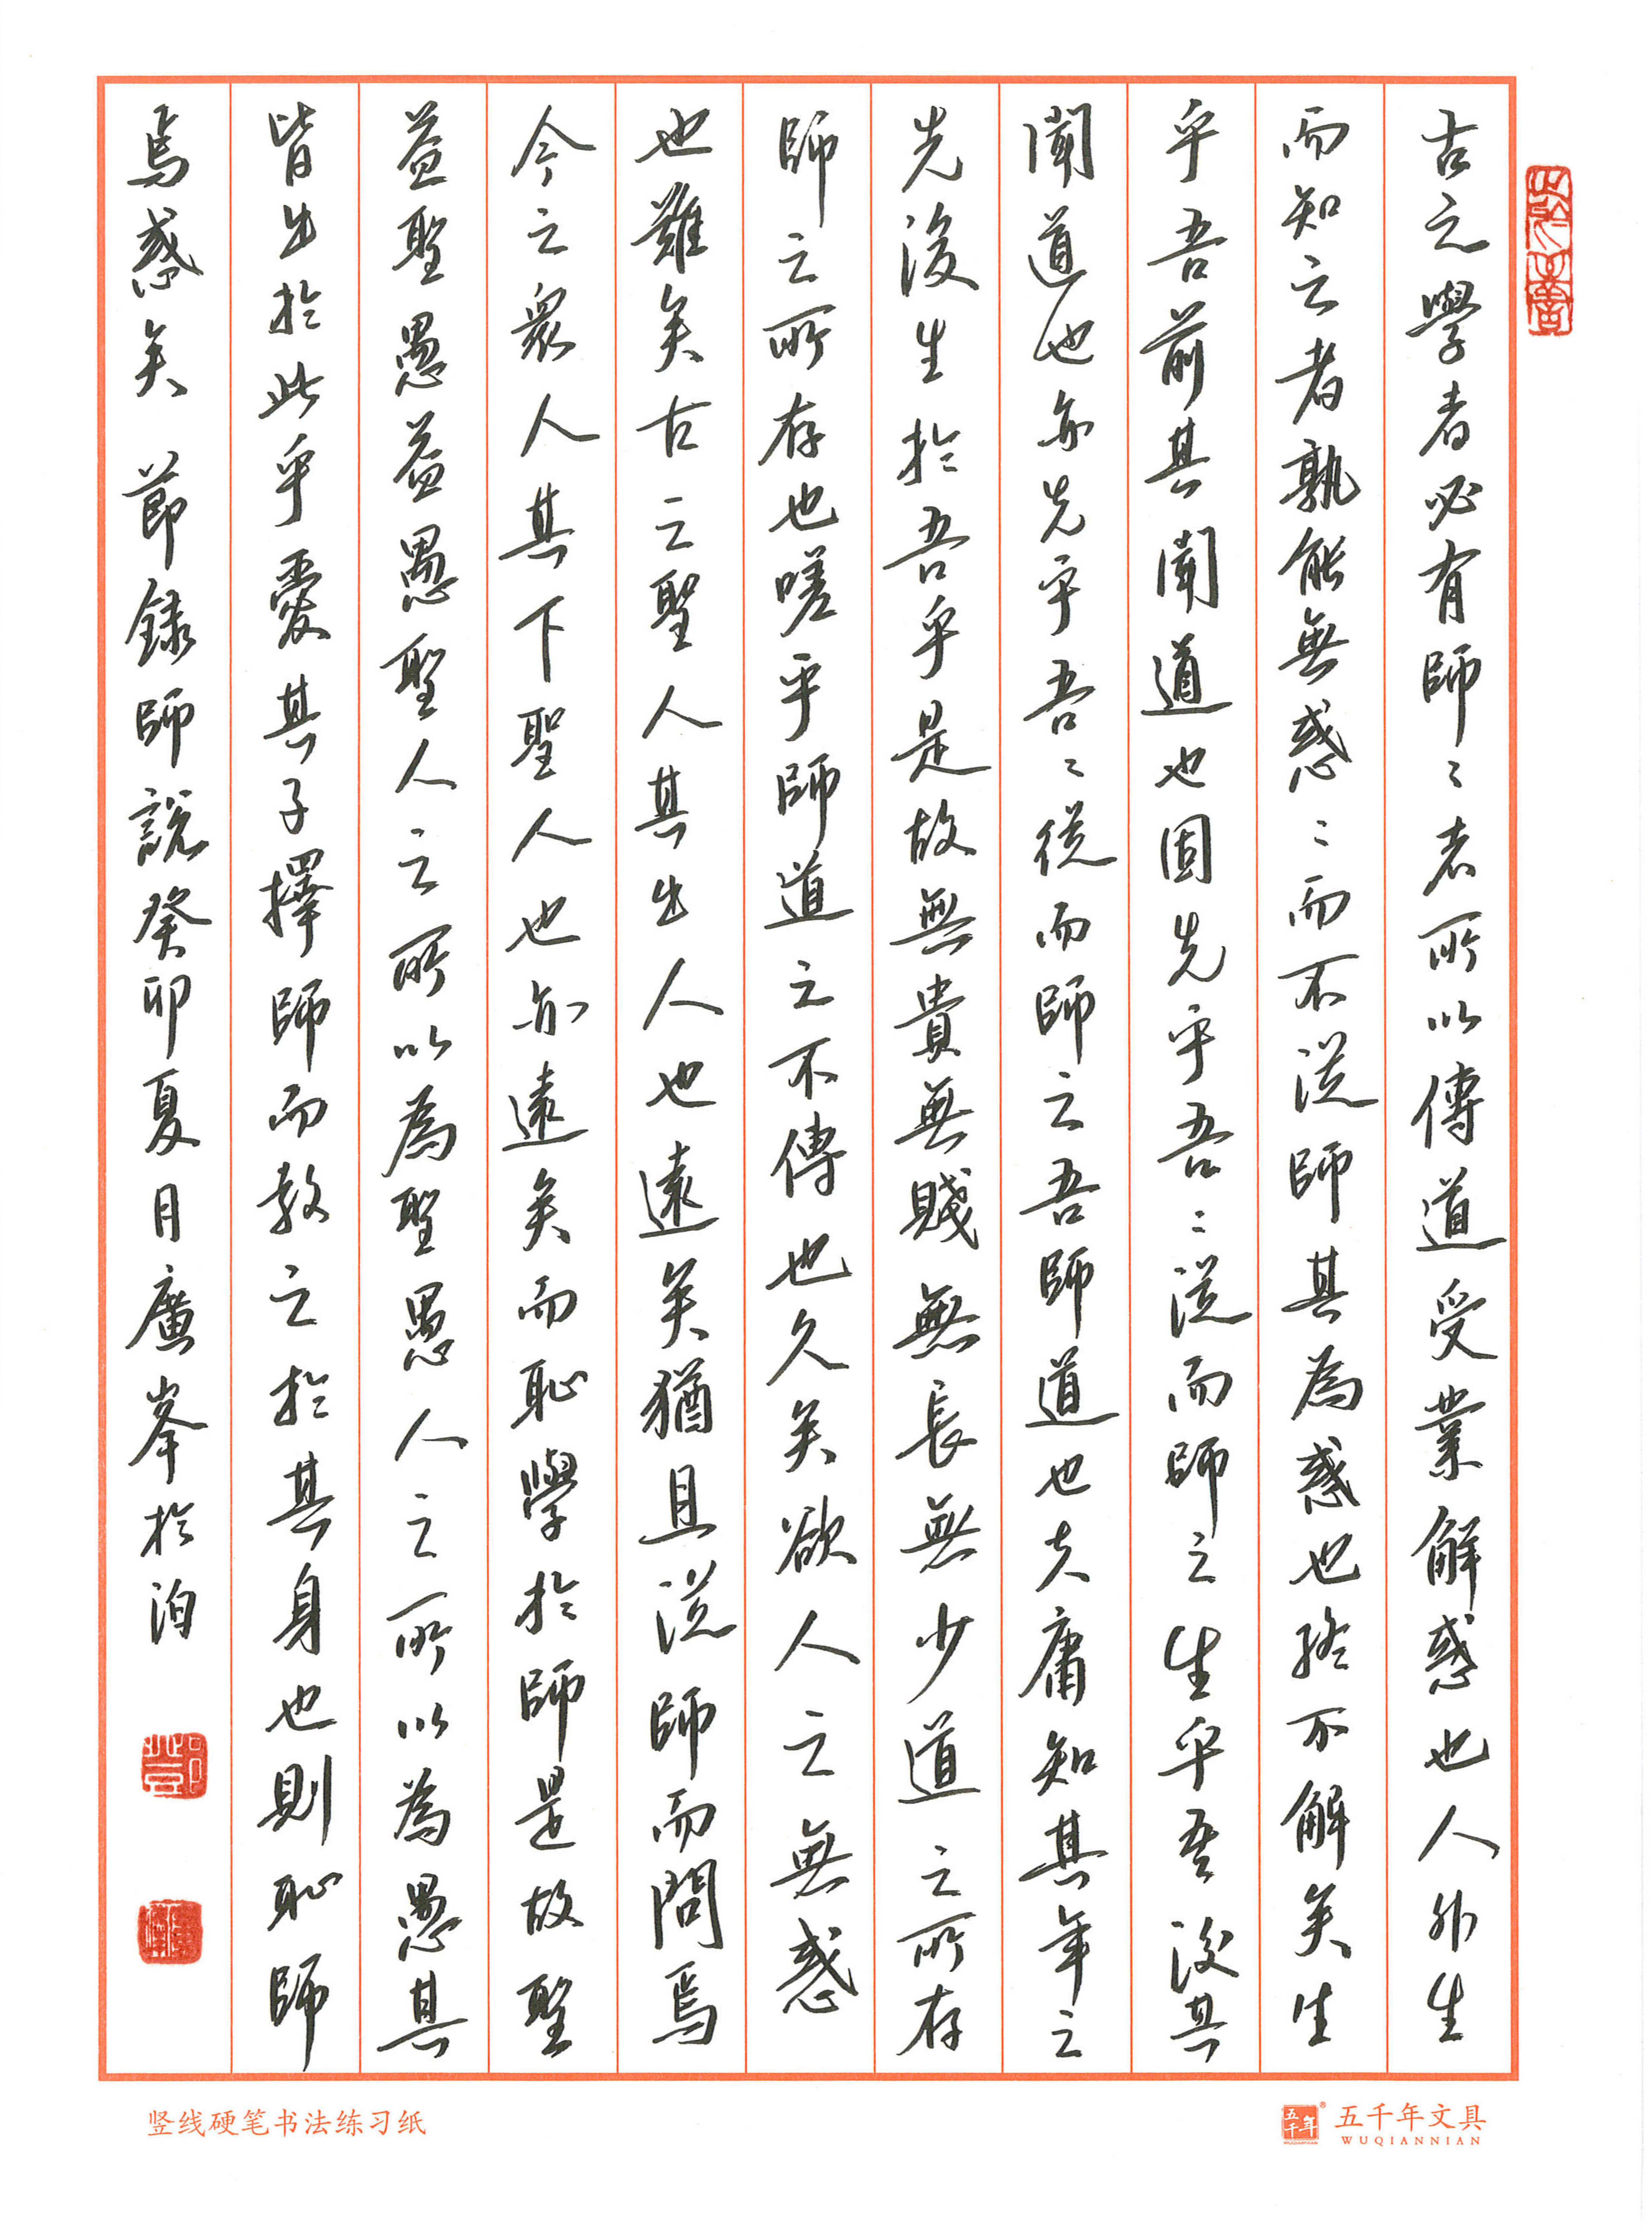 古之學者必有師〻者所以傳道受業解惑也人非生
而知之者孰能無惑〻而不從師其為惑也終不解矣生
乎吾前其聞道也固先乎吾〻從而師之生乎吾後其
聞道也亦先乎吾〻從而師之吾師道也夫庸知其年之
先後生於吾乎是故無貴無賤無長無少道之所存
師之所存也嗟乎師道之不傳也久矣欲人之無惑
也難矣古之聖人其出人也遠矣猶且從師而問焉
今之眾人其下聖人也亦遠矣而恥學於師是故聖
益聖愚益愚聖人之所以為聖愚人之所以為愚其
皆出於此乎愛其子擇師而教之於其身也則恥師
焉惑矣 節錄師說癸卯夏月廣峯於泊
竖线硬笔书法练习纸
五千年
五千年文具
WUQIANNIAN